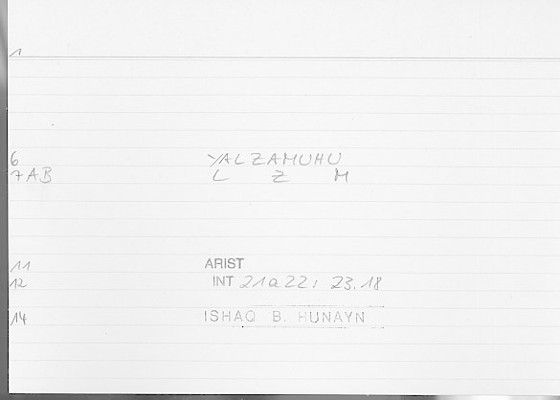 1
6 YALZAMUHU
7AB L Z M
11 ARIST
12 INT 21a22; 23.18
14 ISHAQ B. HUNAYN